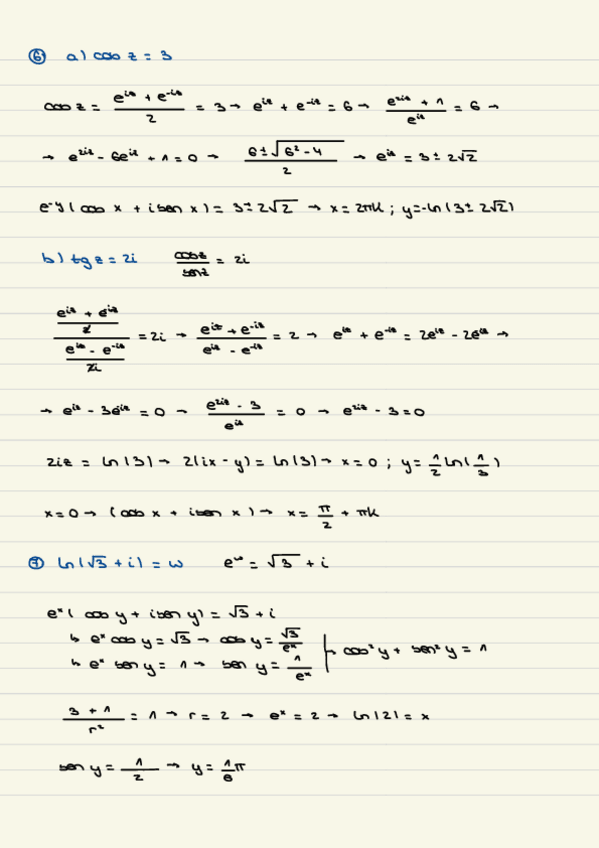 6 a) cos z = 3
cos z = (e^{iz} + e^{-iz})/2 = 3 → e^{iz} + e^{-iz} = 6 → (e^{2iz} + 1)/e^{iz} = 6 →
→ e^{2iz} - 6e^{iz} + 1 = 0 → (6 ± √(6² - 4))/2 → e^{iz} = 3 ± 2√2
e^{-y} (cos x + i sen x) = 3 ± 2√2 → x = 2πk ; y = -ln(3 ± 2√2)
b) tg z = 2i cos z/sen z = 2i
((e^{iz} + e^{iz})/2)/((e^{iz} - e^{-iz})/2i) = 2i → (e^{iz} + e^{-iz})/(e^{iz} - e^{-iz}) = 2 → e^{iz} + e^{-iz} = 2e^{iz} - 2e^{iz} →
→ e^{iz} - 3e^{iz} = 0 → (e^{2iz} - 3)/e^{iz} = 0 → e^{2iz} - 3 = 0
2iz = ln(3) → 2(ix - y) = ln(3) → x = 0 ; y = 1/2 ln(1/3)
x = 0 → (cos x + i sen x) → x = π/2 + πk
7 ln(√3 + i) = w e^w = √3 + i
e^x (cos y + i sen y) = √3 + i
↳ e^x cos y = √3 → cos y = √3/e^x
↳ e^x sen y = 1 → sen y = 1/e^x
→ cos² y + sen² y = 1
(3 + 1)/r² = 1 → r = 2 → e^x = 2 → ln(2) = x
sen y = 1/2 → y = 1/6 π